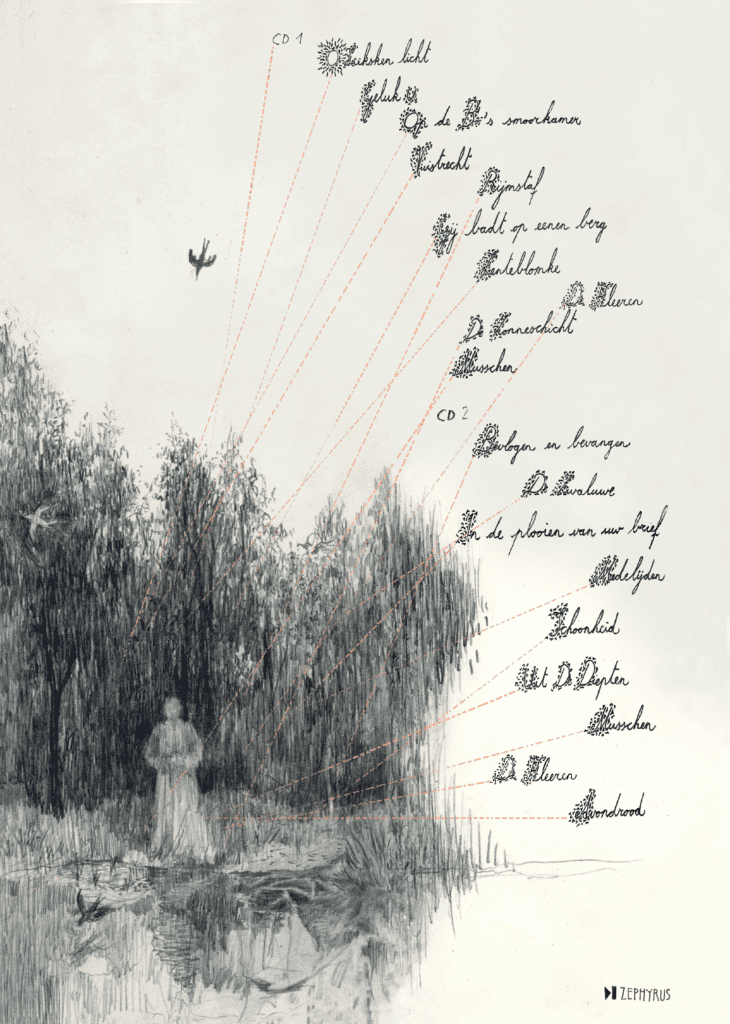 CD 1
licht
Geluk
Op de smoorkamer
Vuistrecht
Rijmstaf
Gij badt op eenen berg
Lenteblomke
De Vleeren
De Zonneschicht
Musschen
CD 2
Bevlogen en bevangen
De Zwaluwe
In de plooien van uw brief
Medelijden
Schoonheid
Uit De Diepten
Musschen
De Vleeren
Avondrood
ZEPHYRUS